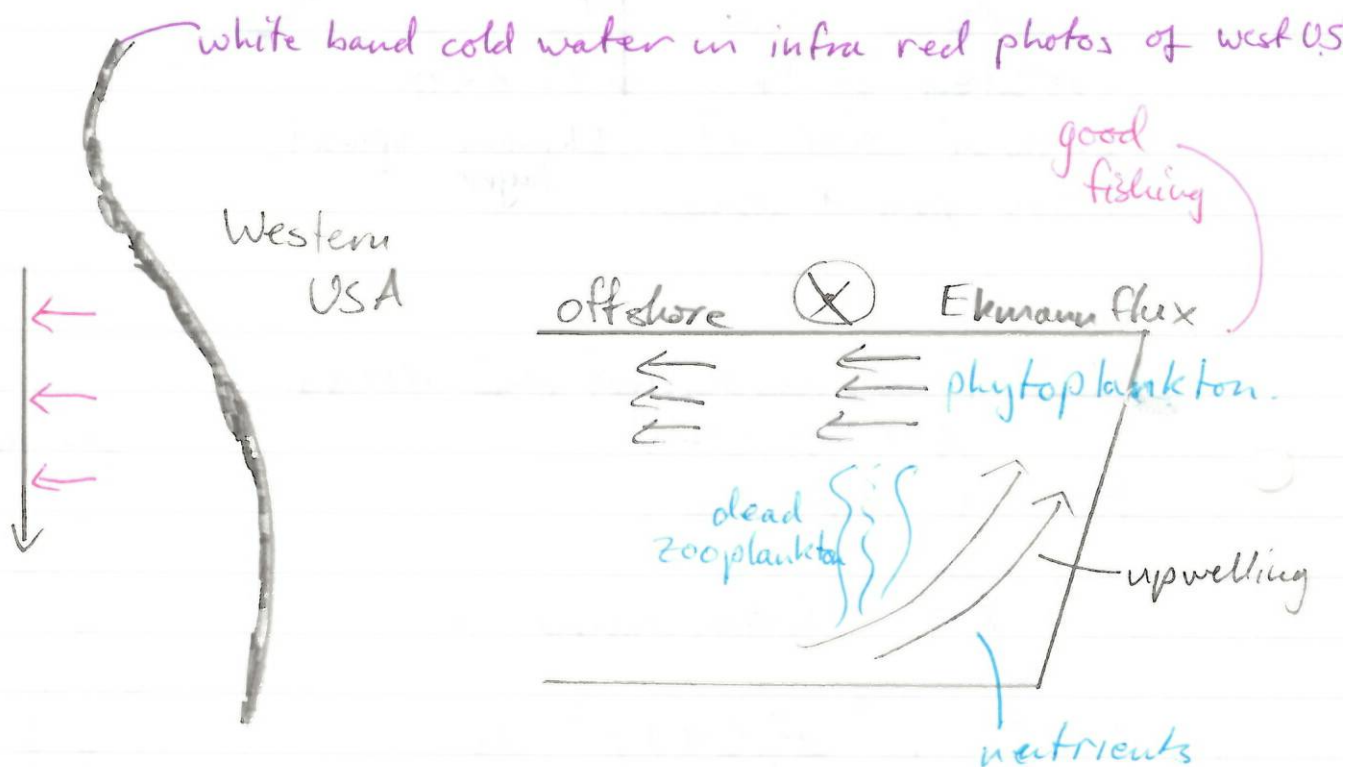 white band cold water in infra red photos of west US
good
fishing
Western
USA
offshore
Ekmann flux
phytoplankton.
dead
zooplankton
upwelling
nutrients